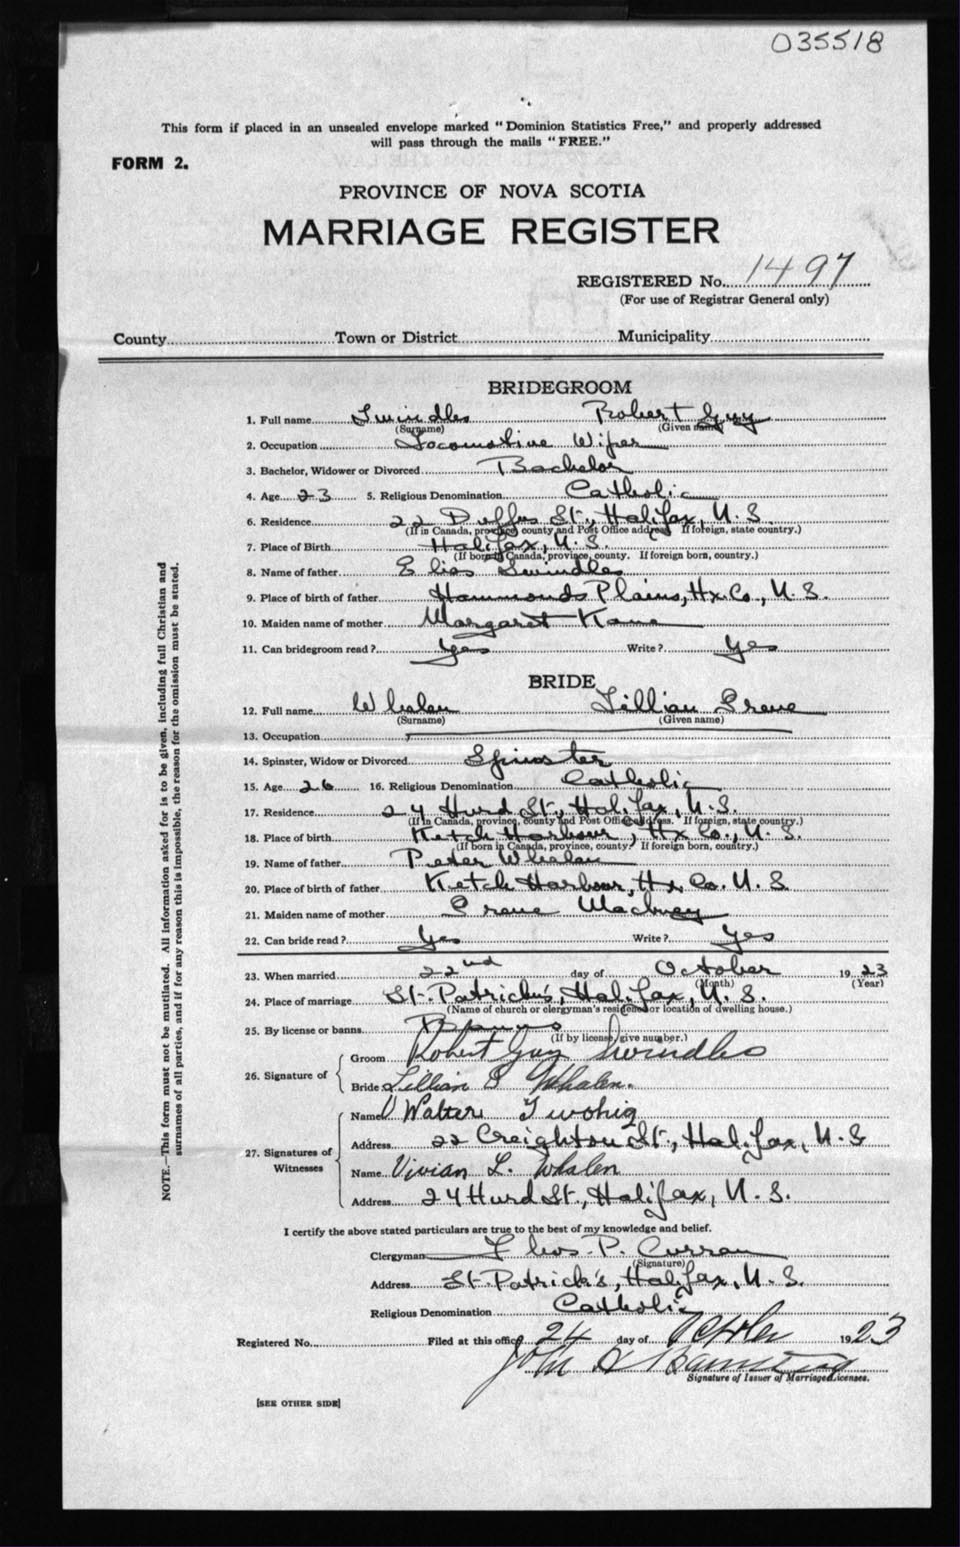 035518
This form if placed in an unsealed envelope marked "Dominion Statistics Free," and properly addressed
will pass through the mails "FREE."
FORM 2.
PROVINCE OF NOVA SCOTIA
MARRIAGE REGISTER
REGISTERED No. 1497
(For use of Registrar General only)
County Town or District Municipality
BRIDEGROOM
1. Full name Swindles Robert Guy
(Surname) (Given name)
2. Occupation Locomotive Wiper
3. Bachelor, Widower or Divorced Bachelor
4. Age 23 5. Religious Denomination Catholic
6. Residence 22 Duffus St., Halifax, N.S.
(If in Canada, province, county and Post Office address. If foreign, state country.)
7. Place of Birth Halifax, N.S.
(If born in Canada, province, county. If foreign born, country.)
8. Name of father Elias Swindles
9. Place of birth of father Hammonds Plains, Hx. Co., N.S.
10. Maiden name of mother Margaret Kane
11. Can bridegroom read? Yes Write? Yes
BRIDE
12. Full name Whalen Lillian Irene
(Surname) (Given name)
13. Occupation
14. Spinster, Widow or Divorced Spinster
15. Age 26 16. Religious Denomination Catholic
17. Residence 24 Hurd St., Halifax, N.S.
(If in Canada, province, county and Post Office address. If foreign, state country.)
18. Place of birth Ketch Harbour, Hx Co., N.S.
(If born in Canada, province, county. If foreign born, country.)
19. Name of father Peter Whalen
20. Place of birth of father Ketch Harbour, Hx. Co. N.S.
21. Maiden name of mother Irene
22. Can bride read? Yes Write? Yes
23. When married 22nd day of October 1923
(Month) (Year)
24. Place of marriage St. Patrick's, Halifax, N.S.
(Name of church or clergyman's residence or location of dwelling house.)
25. By license or banns Banns
(If by license, give number.)
26. Signature of Groom Robert Guy Swindles
Bride Lillian I Whalen.
27. Signatures of Witnesses Name Walter Twohig
Address 22 Creighton St., Halifax, N.S
Name Vivian L. Whalen
Address 24 Hurd St., Halifax, N.S.
I certify the above stated particulars are true to the best of my knowledge and belief.
Clergyman Thos. P. Curran
(Signature)
Address St. Patrick's, Halifax, N.S.
Religious Denomination Catholic
Registered No. Filed at this office 24 day of October 1923
John
Signature of Issuer of Marriage Licenses.
[SEE OTHER SIDE]
NOTE.—This form must not be mutilated. All information asked for is to be given, including full Christian and
surnames of all parties, and if for any reason this is impossible, the reason for the omission must be stated.